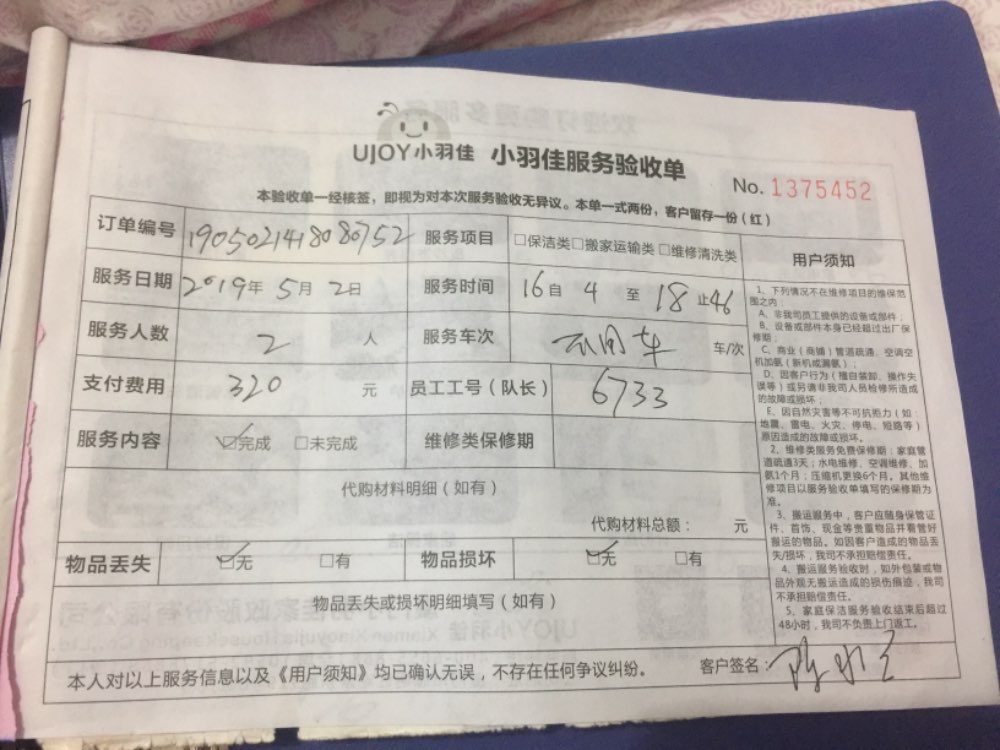 UJOY小羽佳 小羽佳服务验收单
No. 1375452
本验收单一经核签，即视为对本次服务验收无异议。本单一式两份，客户留存一份（红）
订单编号 190502141808075​2 服务项目 □保洁类□搬家运输类 □维修清洗类
服务日期 2019年 5月 2日 服务时间 16自 4 至 18止46
服务人数 2 人 服务车次 车/次
支付费用 320 元 员工工号（队长） 6733
服务内容 ☑完成 □未完成 维修类保修期
代购材料明细（如有）
代购材料总额： 元
物品丢失 ☑无 □有 物品损坏 ☑无 □有
物品丢失或损坏明细填写（如有）
用户须知
1、下列情况不在维修项目的维保范
围之内：
A、非我司员工提供的设备或部件；
B、设备或部件本身已经超过出厂保
修期；
C、商业（商铺）管道疏通、空调空
机加氨（新机或漏氨）；
D、因客户行为（擅自装卸、操作失
误等）或另请非我司人员检修所造成
的故障或损坏；
E、因自然灾害等不可抗拒力（如：
地震、雷电、火灾、停电、短路等）
原因造成的故障或损坏。
2、维修类服务免费保修期：家庭管
道疏通3天；水电维修、空调维修、加
氨1个月；压缩机更换6个月。其他维
修项目以服务验收单填写的保修期为
准。
3、搬运服务中，客户应随身保管证
件、首饰、现金等贵重物品并看管好
搬运的物品。如因客户造成的物品丢
失/损坏，我司不承担赔偿责任。
4、搬运服务验收时，如外包装或物
品外观无搬运造成的损伤痕迹，我司
不承担赔偿责任。
5、家庭保洁服务验收结束后超过
48小时，我司不负责上门返工。
本人对以上服务信息以及《用户须知》均已确认无误，不存在任何争议纠纷。 客户签名：